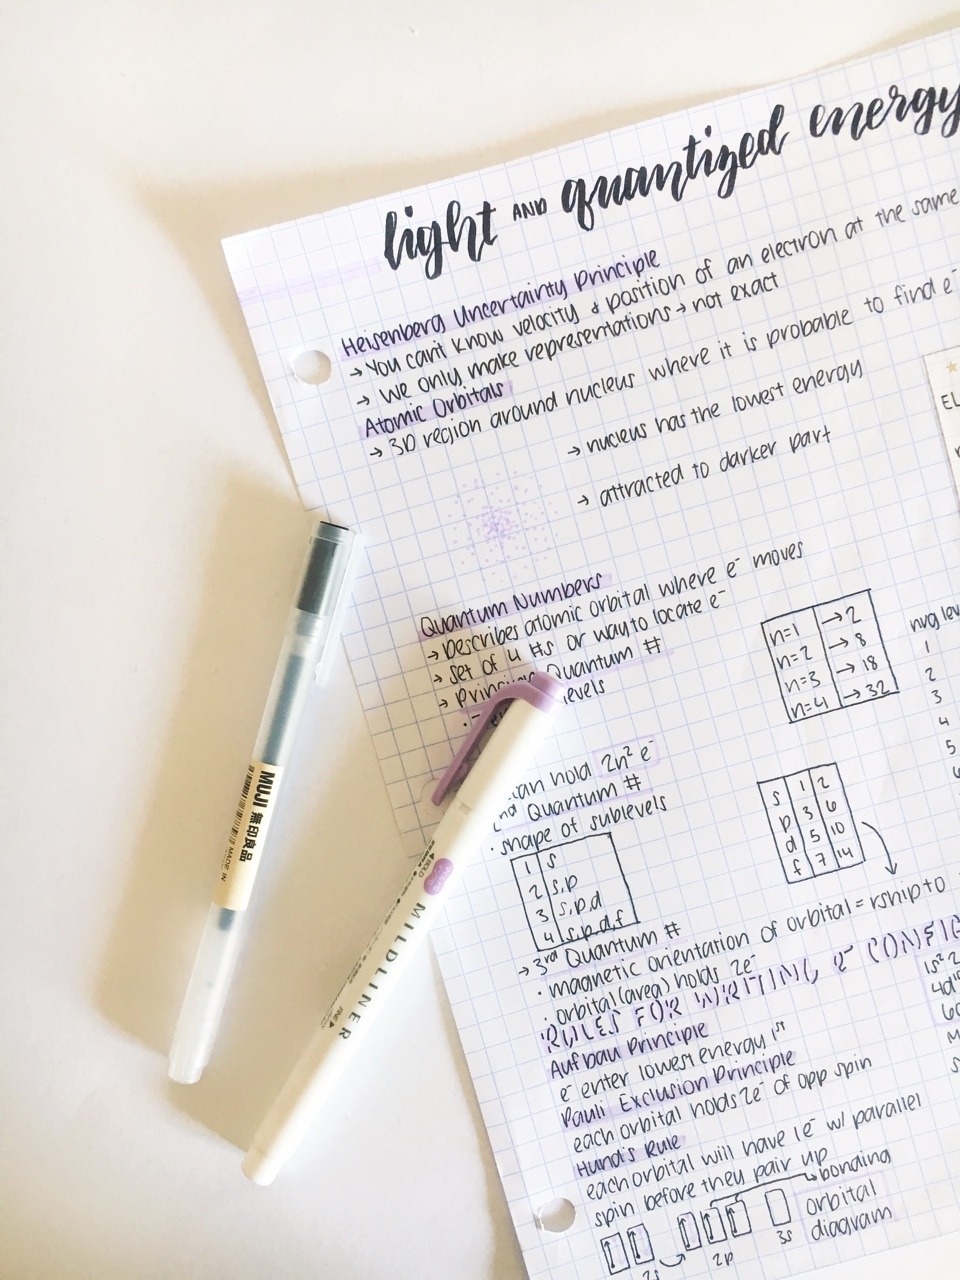 light AND quantized energy
Heisenberg Uncertainty Principle
→ You can't know velocity & position of an electron at the same
→ We only make representations → not exact
Atomic Orbitals
→ 3D region around nucleus where it is probable to find e⁻
→ nucleus has the lowest energy
→ attracted to darker part
EL
Quantum Numbers
→ Describes atomic orbital where e⁻ moves
→ set of 4 #s or way to locate e⁻
→ Quantum #
levels
n=1 → 2
n=2 → 8
n=3 → 18
n=4 → 32
nrg lev
1
2
3
4
5
can hold 2n² e⁻
Quantum #
· shape of sublevels
1 s
2 s,p
3 s,p,d
4 s,p,d,f
s 1 2
p 3 6
d 5 10
f 7 14
→ 3rd Quantum #
· magnetic orientation of orbital = rship to
· orbital (area) holds 2e⁻
RULES FOR WRITING e⁻ CONFIG
1s² 2
4d¹⁰
Aufbau Principle
e⁻ enter lowest energy 1st
Pauli Exclusion Principle
each orbital holds 2e⁻ of opp spin
Hund's Rule
each orbital will have 1e⁻ w/ parallel
spin before they pair up
→ bonding
orbital
diagram
2s 2p 3s
MUJI 無印良品
MADE IN
MILDLINER
BOLD
FINE